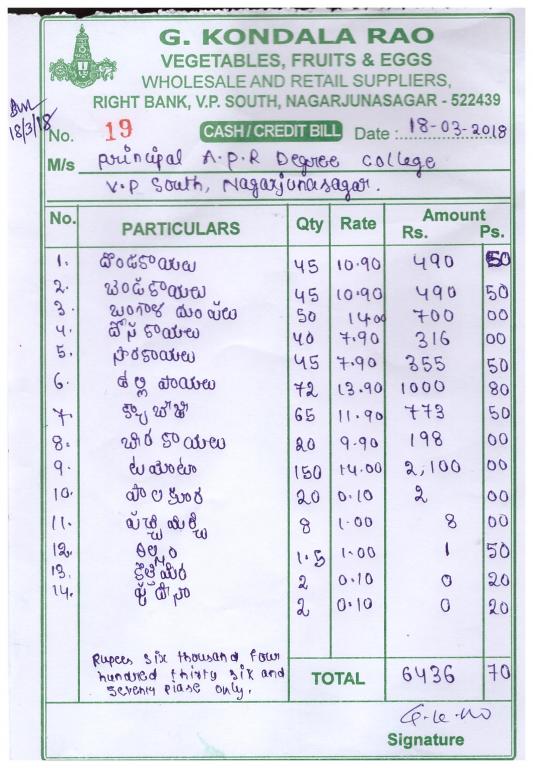 G. KONDALA RAO
VEGETABLES, FRUITS & EGGS
WHOLESALE AND RETAIL SUPPLIERS,
RIGHT BANK, V.P. SOUTH, NAGARJUNASAGAR - 522439
18/3/18
No. 19 CASH / CREDIT BILL Date : 18-03-2018
M/s principal A.P.R Degree college
V.P South, Nagarjunasagar.
No. PARTICULARS Qty Rate Amount
Rs. Ps.
1. దొండకాయలు 45 10.90 490 50
2. బెండకాయలు 45 10.90 490 50
3. బంగాళ దుంపలు 50 14.00 700 00
4. దోసకాయలు 40 7.90 316 00
5. సొరకాయలు 45 7.90 355 50
6. ఉల్లి పాయలు 72 13.90 1000 80
7. క్యాబేజి 65 11.90 773 50
8. బీరకాయలు 20 9.90 198 00
9. టమోటా 150 14.00 2,100 00
10. పాలకూర 20 0.10 2 00
11. పచ్చిమిర్చి 8 1.00 8 00
12. అల్లం 1.5 1.00 1 50
13. కొత్తిమీర 2 0.10 0 20
14. పుదీనా 2 0.10 0 20
Rupees six thousand four
hundred thirty six and
seventy piase only.
TOTAL 6436 70
Signature